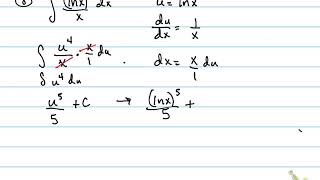 ∫ (lnx)/x dx   u = lnx
du/dx = 1/x
∫ u⁴/x · x/1 du   dx = x/1 du
∫ u⁴ du
u⁵/5 + C → (lnx)⁵/5 +